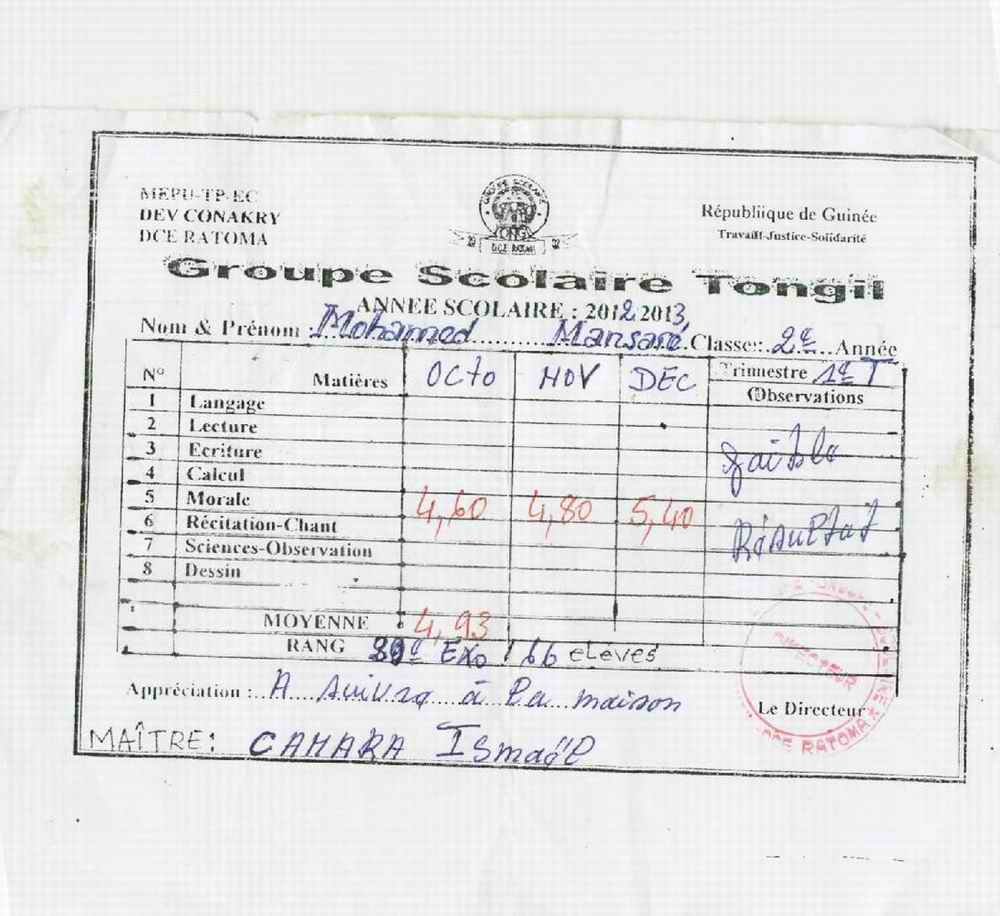 MEPU-TP-EC
DEV CONAKRY
DCE RATOMA
GROUPE SCOLAIRE
TONGIL
DCE RATOMA
Républiique de Guinée
Travail-Justice-Solidarité
Groupe Scolaire Tongil
ANNEE SCOLAIRE : 2012 2013
Nom & Prénom : Mohamed Mansaré Classe: 2e Année
N° Matières OCTO NOV DEC Trimestre 1er T
Observations
1 Langage
2 Lecture
3 Ecriture
4 Calcul
5 Morale
6 Récitation-Chant
7 Sciences-Observation
8 Dessin
4,60 4,80 5,40
faible
Résultat
MOYENNE 4,93
RANG Exo / 66 eleves
Appréciation : A suivre à la maison
Le Directeur
DIRECTEUR
DCE RATOMA
MAÎTRE: CAMARA Ismaël